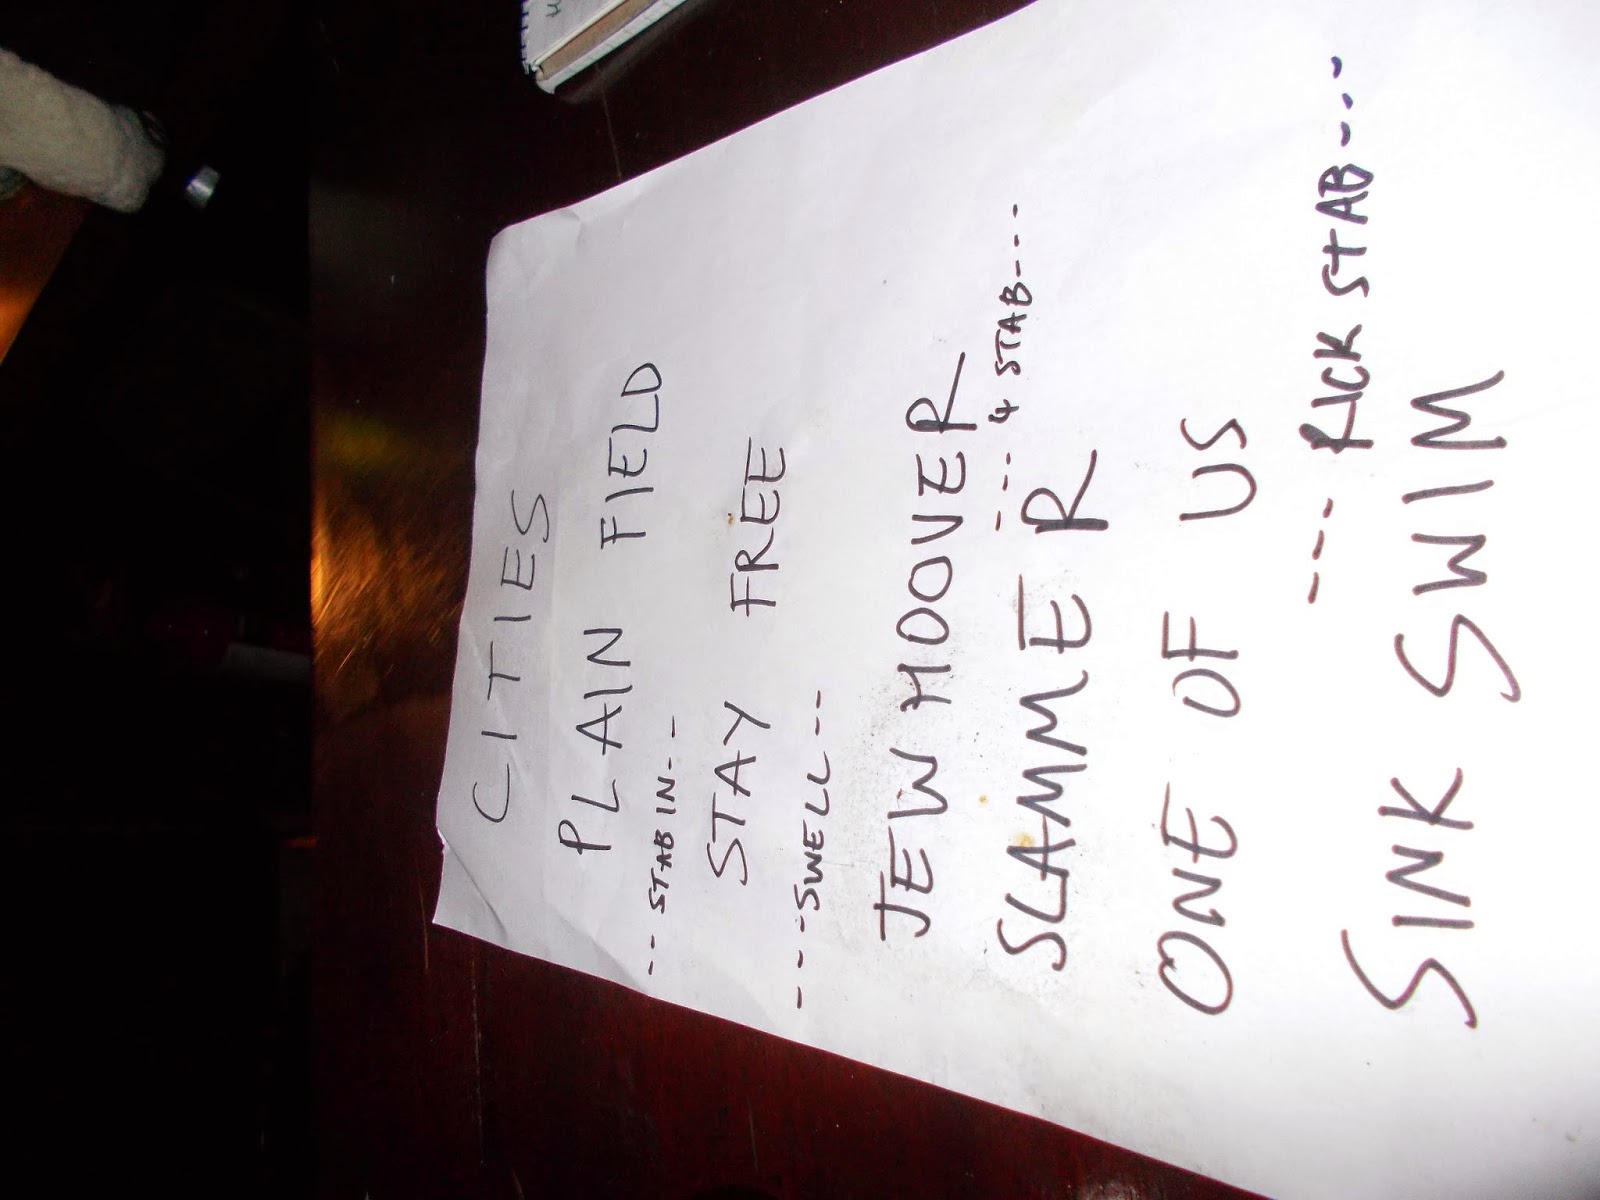 CITIES
PLAIN FIELD
-- STAB IN---
STAY FREE
----SWELL--
JEW HOOVER
---- 4 STAB----
SLAMMER
ONE OF US
--- RICK STAB---
SINK SWIM